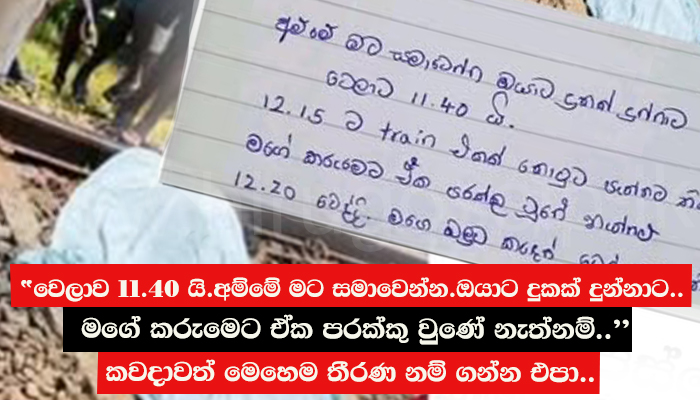 අම්මේ මට සමාවෙන්න ඔයාට දුකක් දුන්නාට
වෙලාව 11.40 යි.
12.15 ට train එකක් කොළඹට
මගේ කරුමෙට ඒක පරක්කු වුණේ නැත්නම්
12.20 වෙද්දි මගෙ
"වෙලාව 11.40 යි.අම්මේ මට සමාවෙන්න.ඔයාට දුකක් දුන්නාට..
මගේ කරුමෙට ඒක පරක්කු වුණේ නැත්නම්..’’
කවදාවත් මෙහෙම තීරණ නම් ගන්න එපා..